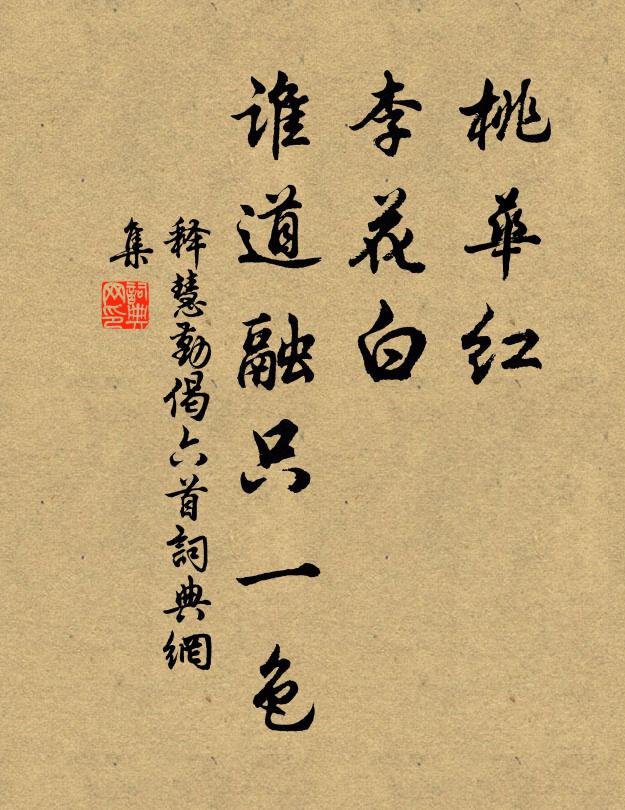 桃华红
李花白
谁道融只一色
释慧勤偈六首詞典網
集
詞典
网印